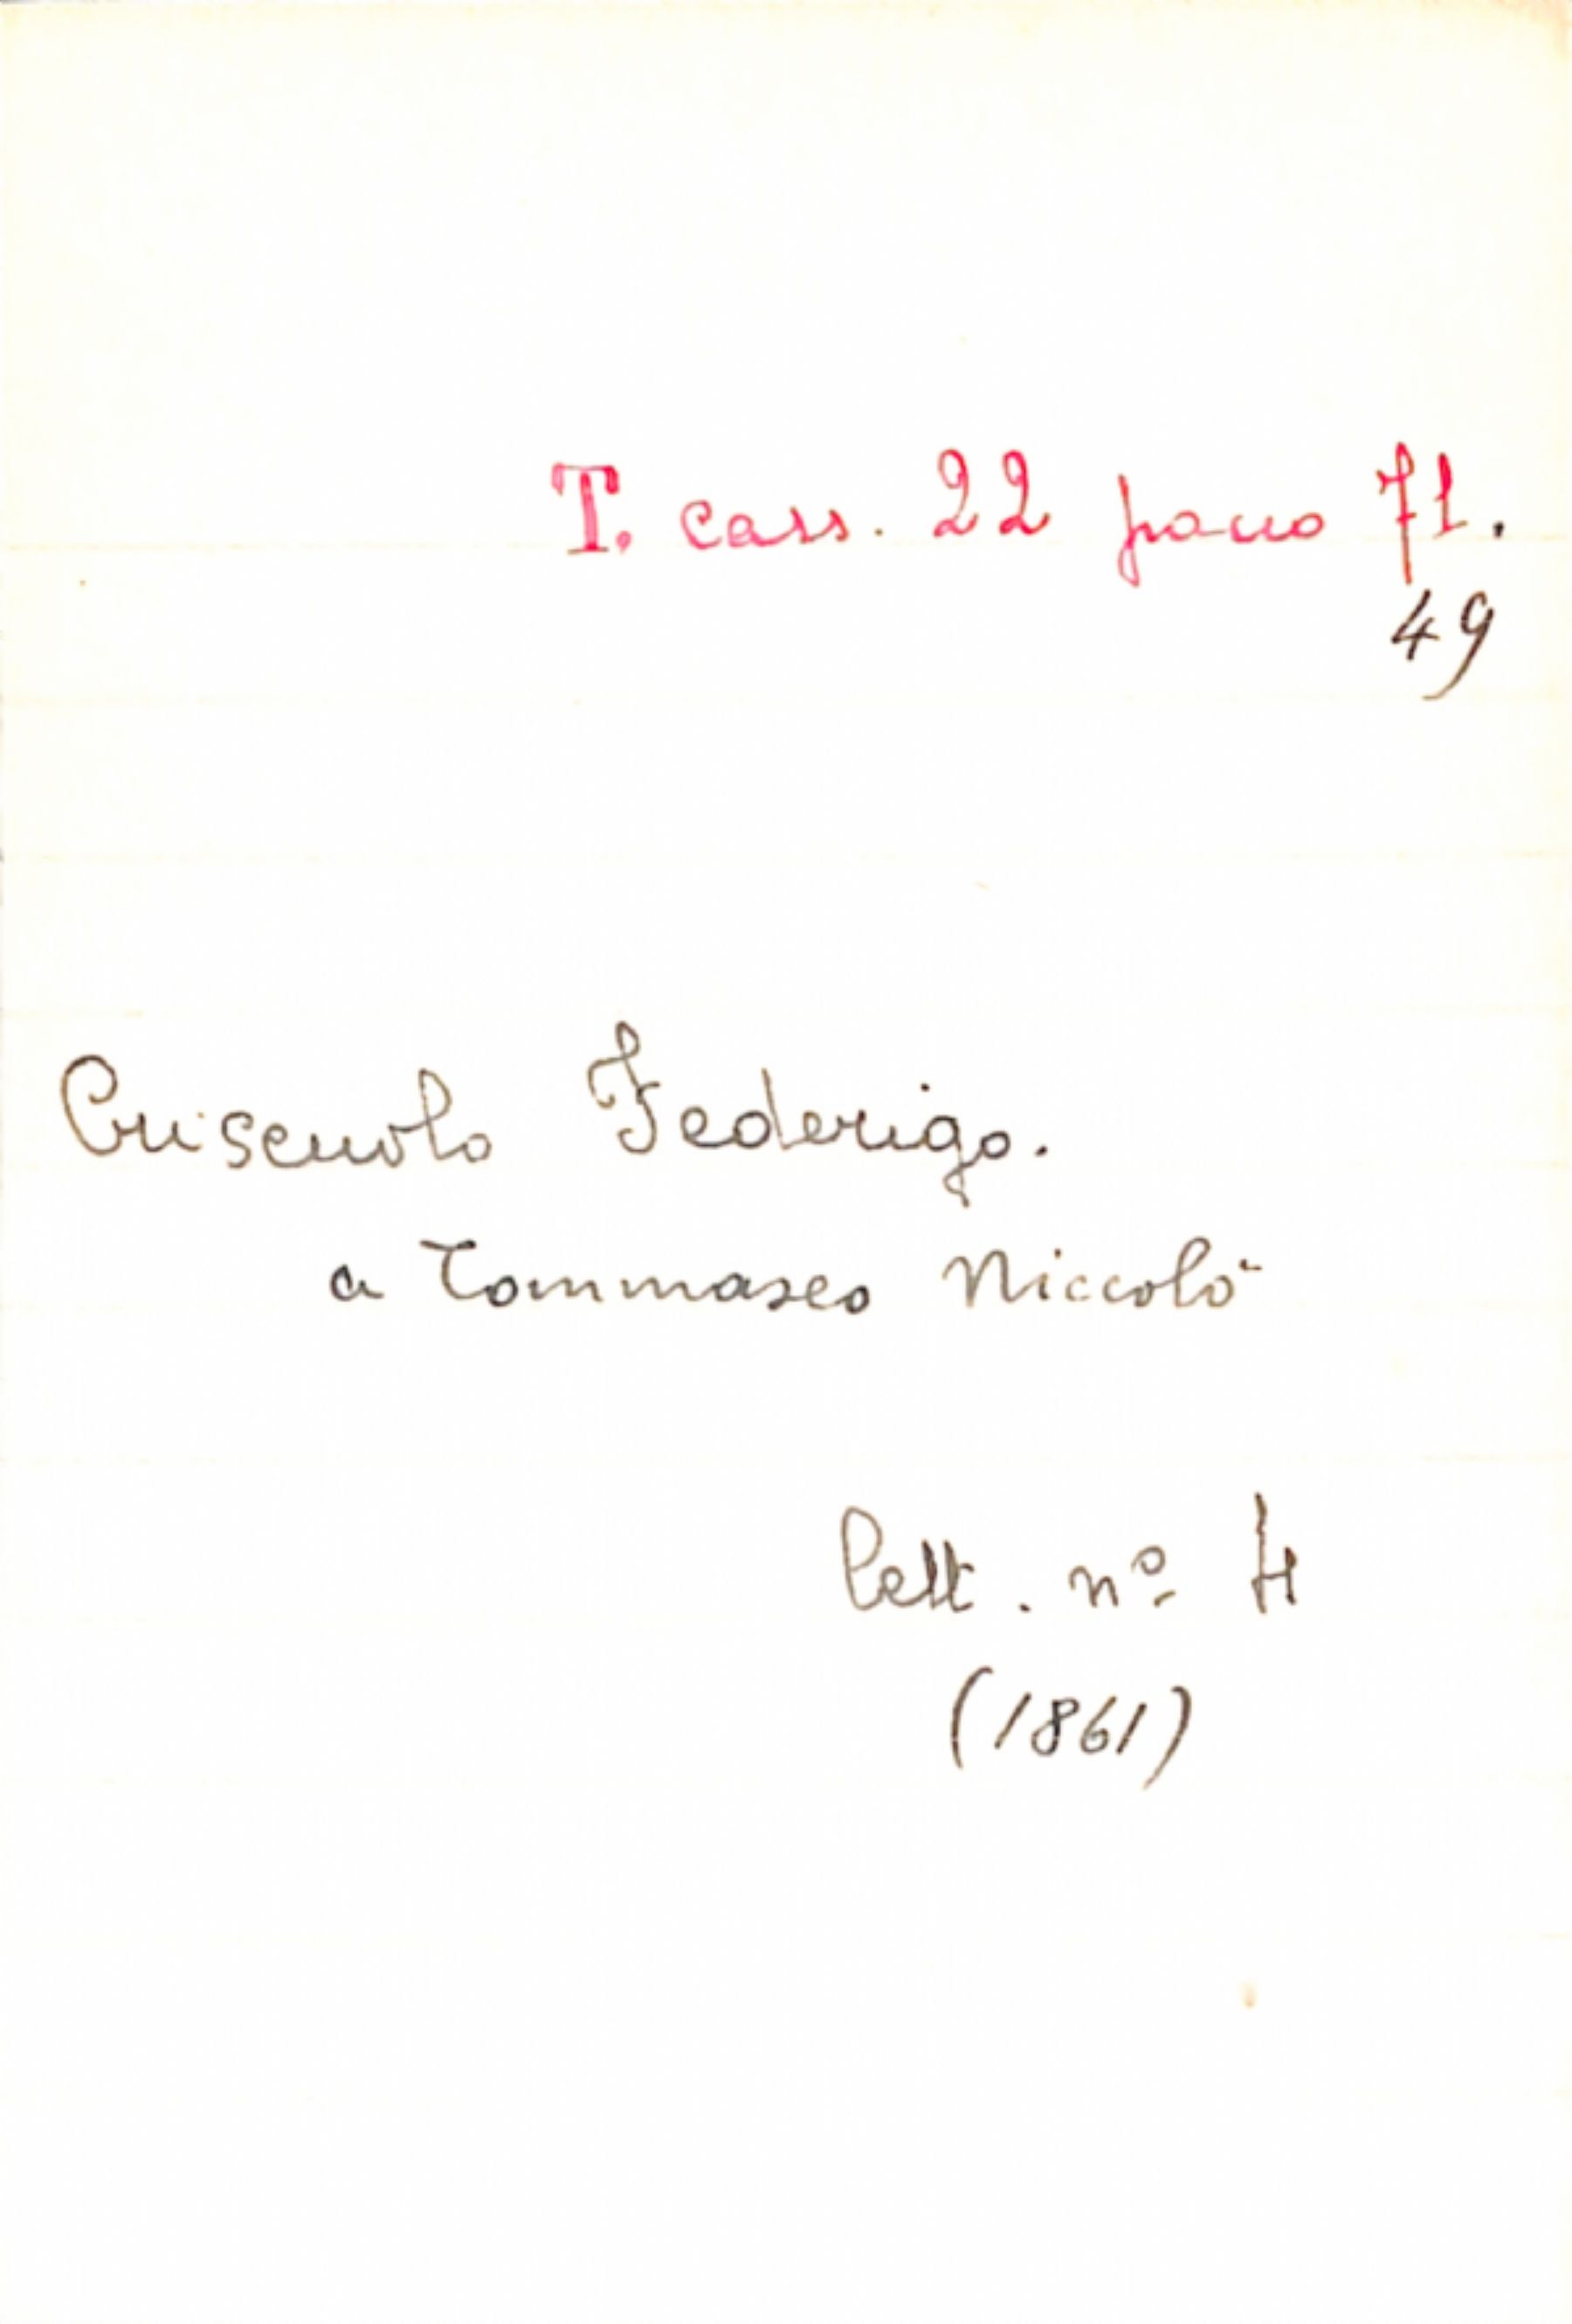 T. cass. 22 pacco 71.
49
Criscuolo Federigo.
a Tommaseo Niccolò
lett. nº 4
(1861)